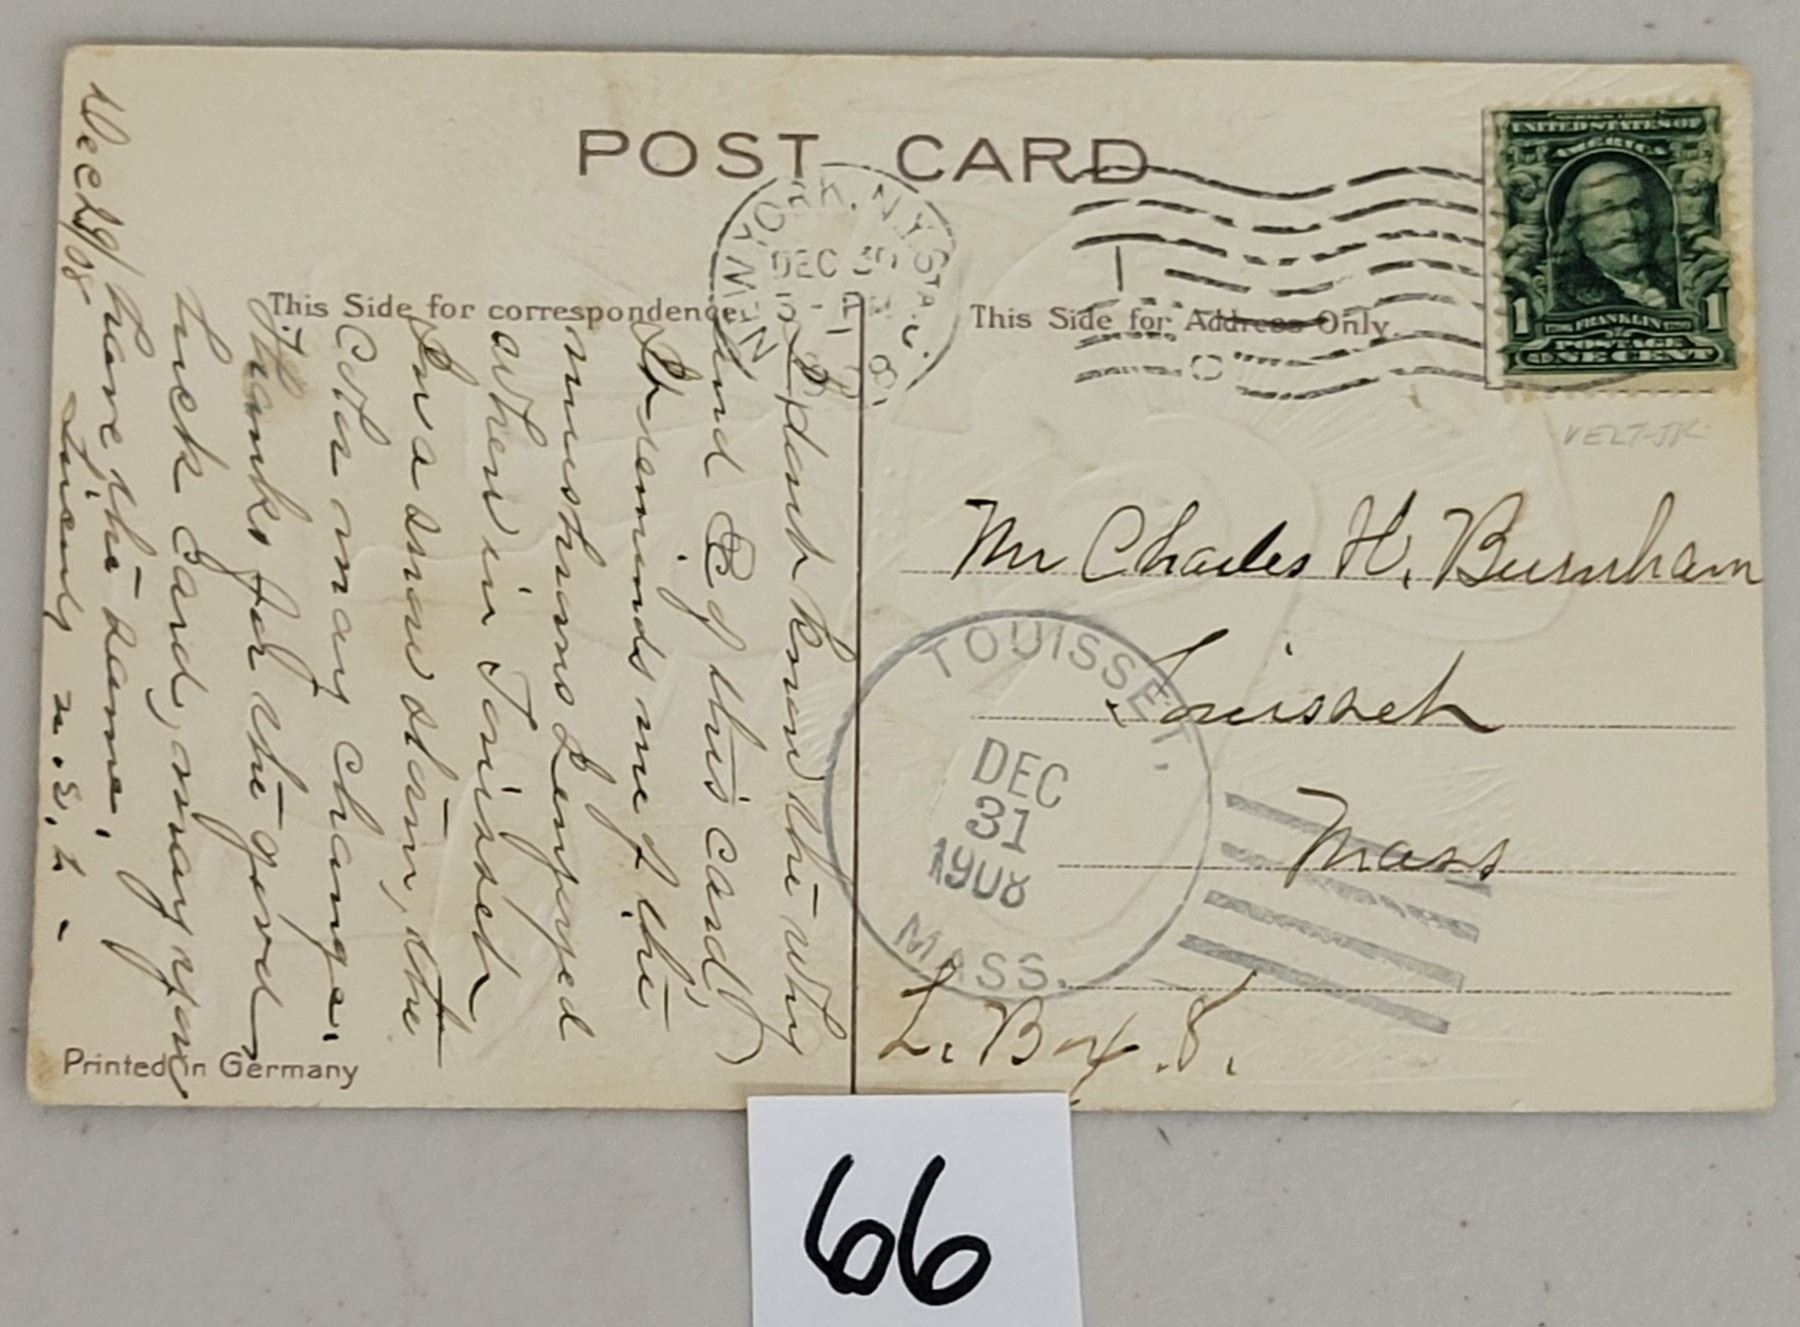 POST CARD
NEW YORK, N.Y. STA. C.
DEC 30
5 - PM
1908
UNITED STATES OF
AMERICA
1 FRANKLIN 1
POSTAGE
ONE CENT
This Side for correspondence.
This Side for Address Only.
VELT-JR
Dec 29/08
I don't know the why
and of this card,
It reminds me of the
mushrooms I enjoyed
when in Touisset
In a snow storm, the
Cota may change.
Thanks for the good
luck card, may you
have the same.
N.E.H. -
Mr Charles H. Burnham
Touisset
Mass
L. Box. 8.
TOUISSET.
DEC
31
1908
MASS.
Printed in Germany
66